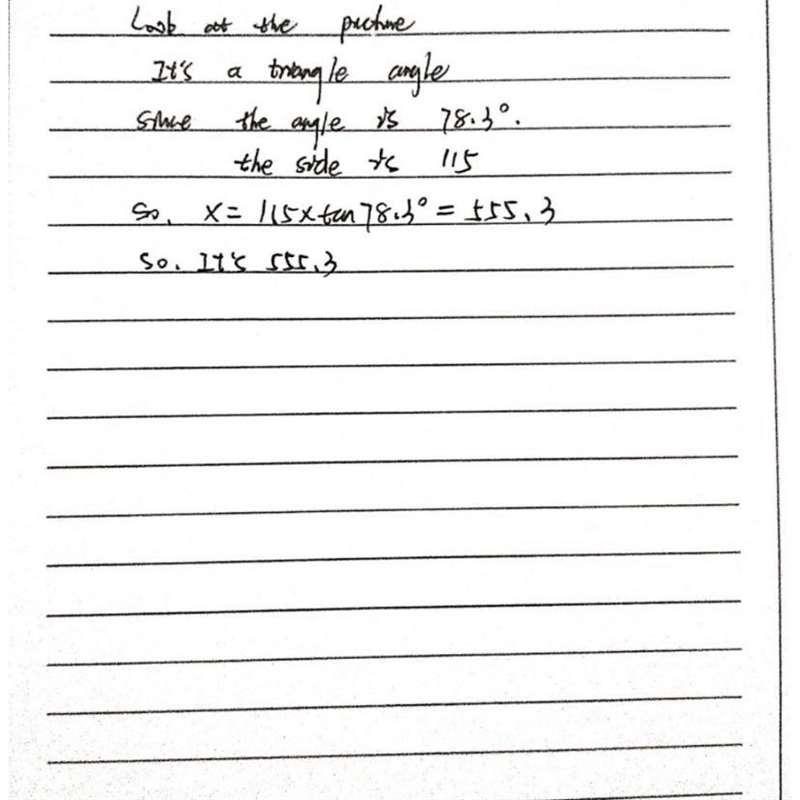 Look at the picture
It's a triangle angle
since the angle is 78.3°.
the side is 115
So, x = 115 x tan 78.3° = 555.3
So. It's 555.3